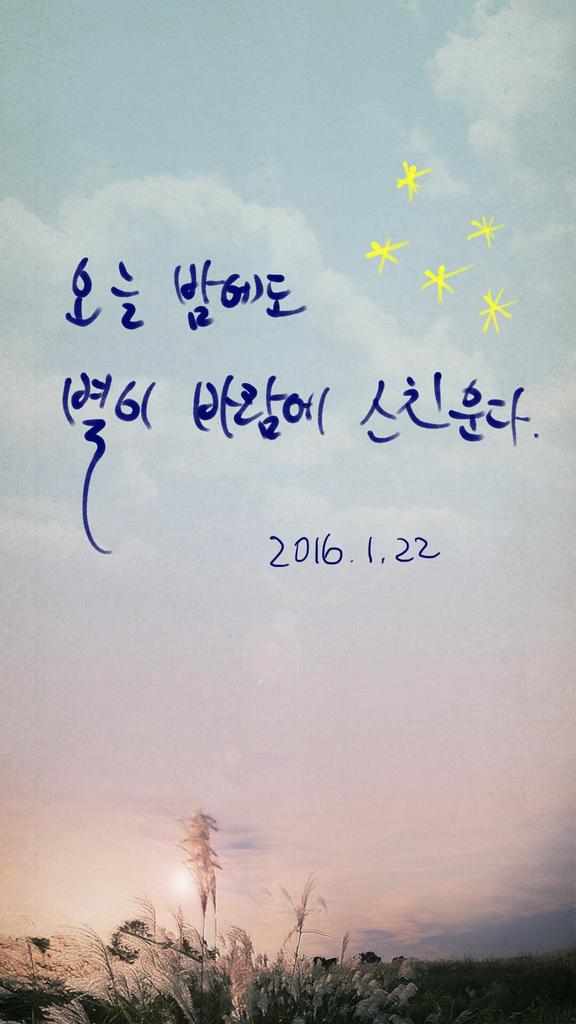 오늘 밤에도
별이 바람에 스친운다.
2016.1.22